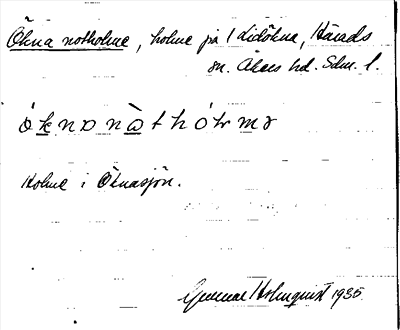 Ökna notholme, holme på Lidökna, Härads
sn. Åkers hd. Sdm. l.
Holme i Öknasjön.
Gunnar Holmquist 1935.